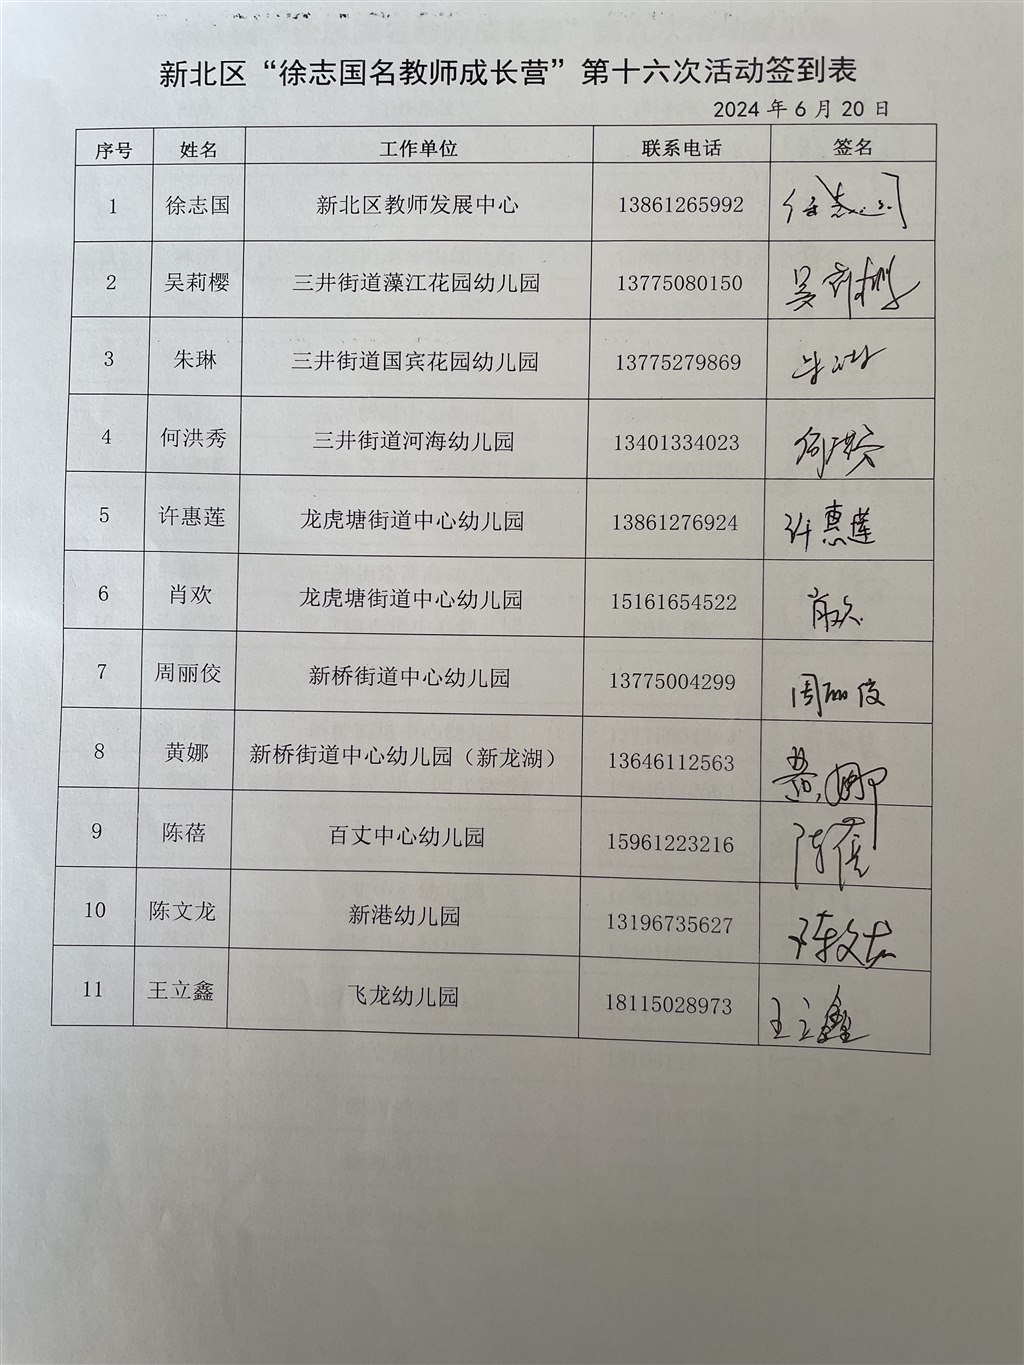 新北区“徐志国名教师成长营”第十六次活动签到表
2024 年 6 月 20 日
序号 姓名 工作单位 联系电话 签名
1 徐志国 新北区教师发展中心 13861265992 徐志国
2 吴莉樱 三井街道藻江花园幼儿园 13775080150 吴莉樱
3 朱琳 三井街道国宾花园幼儿园 13775279869 朱琳
4 何洪秀 三井街道河海幼儿园 13401334023 何洪秀
5 许惠莲 龙虎塘街道中心幼儿园 13861276924 许惠莲
6 肖欢 龙虎塘街道中心幼儿园 15161654522 肖欢
7 周丽佼 新桥街道中心幼儿园 13775004299 周丽佼
8 黄娜 新桥街道中心幼儿园（新龙湖） 13646112563 黄娜
9 陈蓓 百丈中心幼儿园 15961223216 陈蓓
10 陈文龙 新港幼儿园 13196735627 陈文龙
11 王立鑫 飞龙幼儿园 18115028973 王立鑫